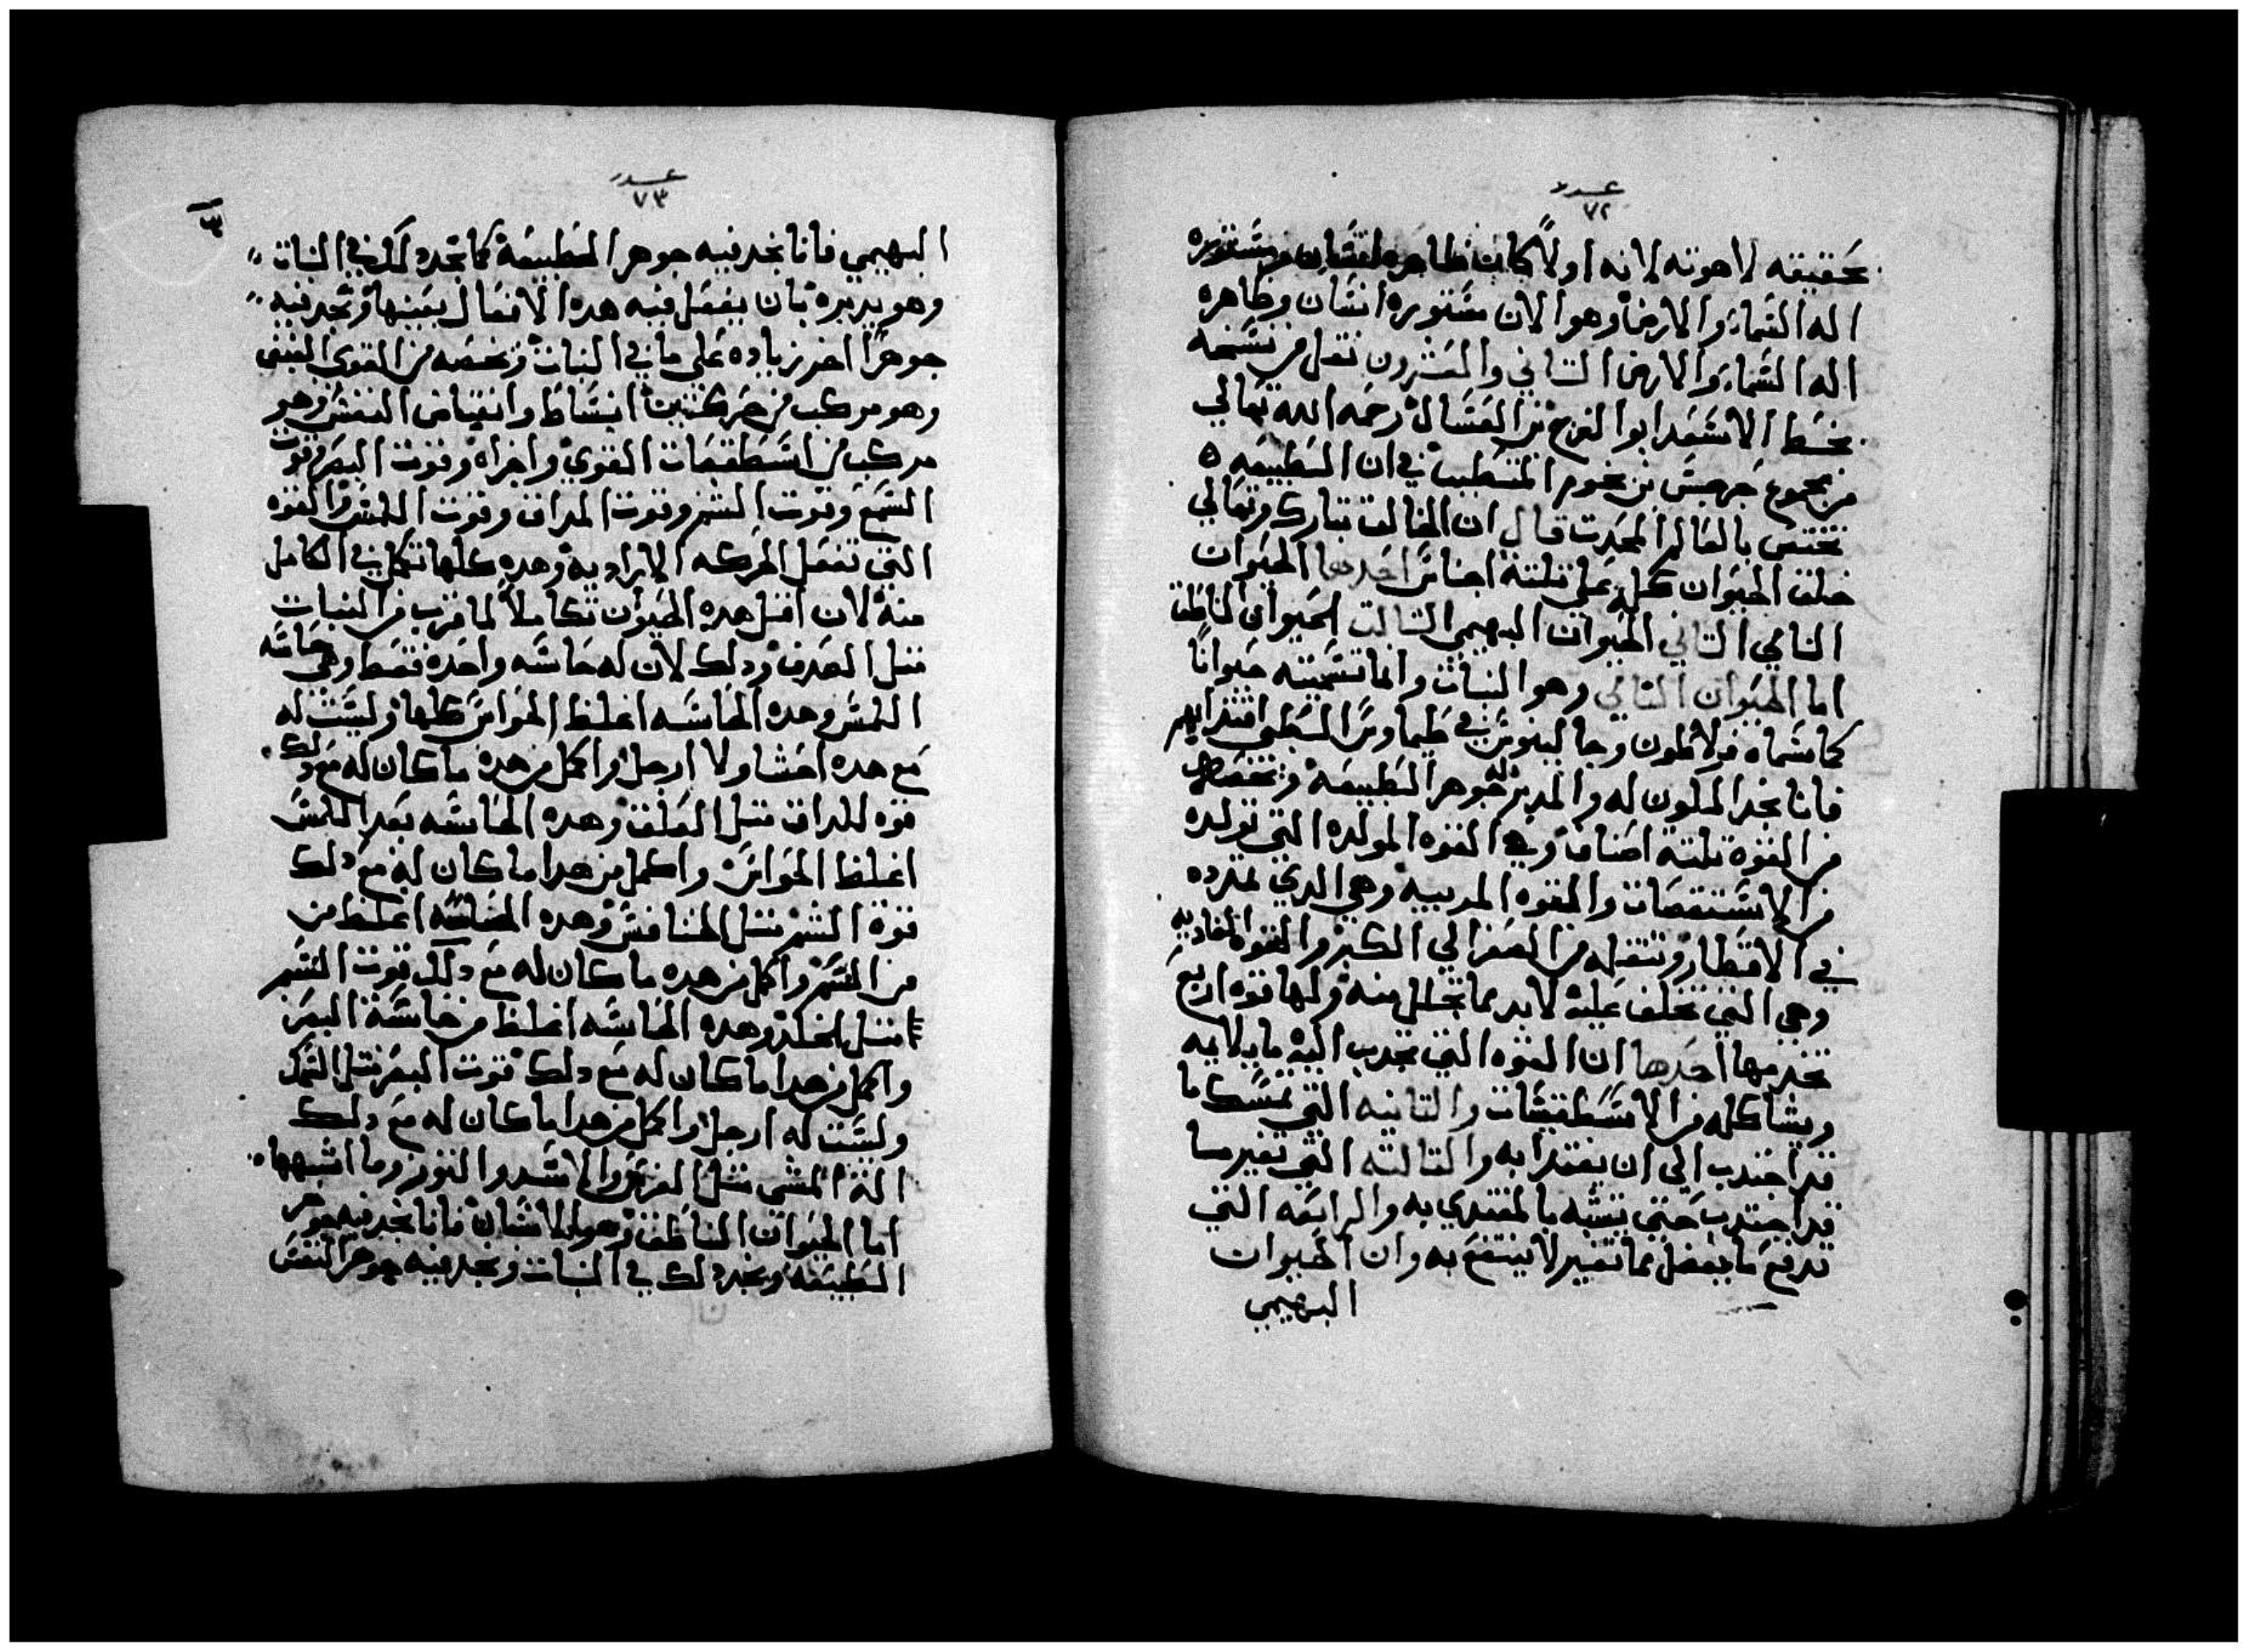 عدد
٧٢
بحقيقته لاهوته لانه اولاً كان ظاهره انسان ومستوره
اله السماء والارض وهو الان مستوره انسان وظاهره
اله السماء والارض التاني والعشرون نقل من نسخه
بخط الاسعد ابو الفرج بن العسال رحمه الله تعالي
من مجموع جرجس بن المتطبب في ان الطبيعه ٥
تختص بالعالم المحدت قال ان الخالق تبارك وتعالي
خلق الحيوان كله علي تلتة اجناس احدها الحيوان
النامي التاني الحيوان البهيمي التالت الحيوان الناطق
اما الحيوان النامي وهو النبات وانما تسميته حيواناً
كما سماه فلاطون وجالينوس في طيماوس الطبي اقتدا بهم
فانا نجد المكون له والمدبر له جوهر الطبيعة وتخصه
من القوة تلتة اصناف وهي القوه المولده التي تولده
من الاستقصات والقوه المربيه وهي الدي تمدده
في الاقطار وتنقله من الصغر الي الكبر والقوه الغاديه
وهي التي تخلف عليه لابد مما تحلل منه ولها قوه اربع
تخدمها احدها ان القوه التي تجدب اليه ما يلايمه
ويشاكله من الاسطقسات والتانيه التي تمسك ما
قد اجتدب الي ان يغتدا به والتالته التي تغير ما
قد اجتدب حتي يتشبه بالمغتدي به والرابعه التي
تدفع ما يفضل مما تغير لا ينتفع به وان الحيوان
البهيمي
عدد
٧٣
البهيمي فانا نجد فيه جوهر الطبيعة كما نجد دلك في النبات
وهو يدبره بان يفعل فيه هده الافعال بعينها ونجد فيه
جوهراً اخر زياده علي ما في النبات وتخصه من القوي النبض
وهو مركب من حركتين انبساط وانقباض النفس وهو
مركب من اسطقصات القوي واجزاه وقوت البصر وقوت
السمع وقوت الشم وقوت المداق وقوت اللمس والقوه
التي تفعل الحركه الاراديه وهده كلها تكمل في الكامل
منه لان اقل هده الحيوان تكاملاً لما قرب من النبات
متل الصدف ودلك لان له حاسه واحده فقط وهي حاسه
اللمس وهده الحاسه اغلظ الحواس كلها وليست له
مع هده احشا ولا ارجل واكمل من هده ما كان له مع دلك
قوه للداق متل العلق وهده الحاسه بعد اللمس
اغلظ الحواس واكمل من هدا ما كان له مع دلك
قوة الشم متل الخنافس وهده الحاسه اغلظ من
من السمع واكمل من هده ما كان له مع دلك قوت الشم
متل الخلد وهده الحاسه اغلظ من حاسة البصر
واكمل من هدا ما كان له مع دلك قوت البصر متل السمك
وليست له ارجل واكمل من هدا ما كان له مع دلك
الة المشي متل الفرس والاسد والتور وما اشبهها
اما الحيوان الناطق وهو الانسان فانا نجد فيه جوهر
الطبيعه ونجد دلك في النبات ونجد فيه جوهر النفس